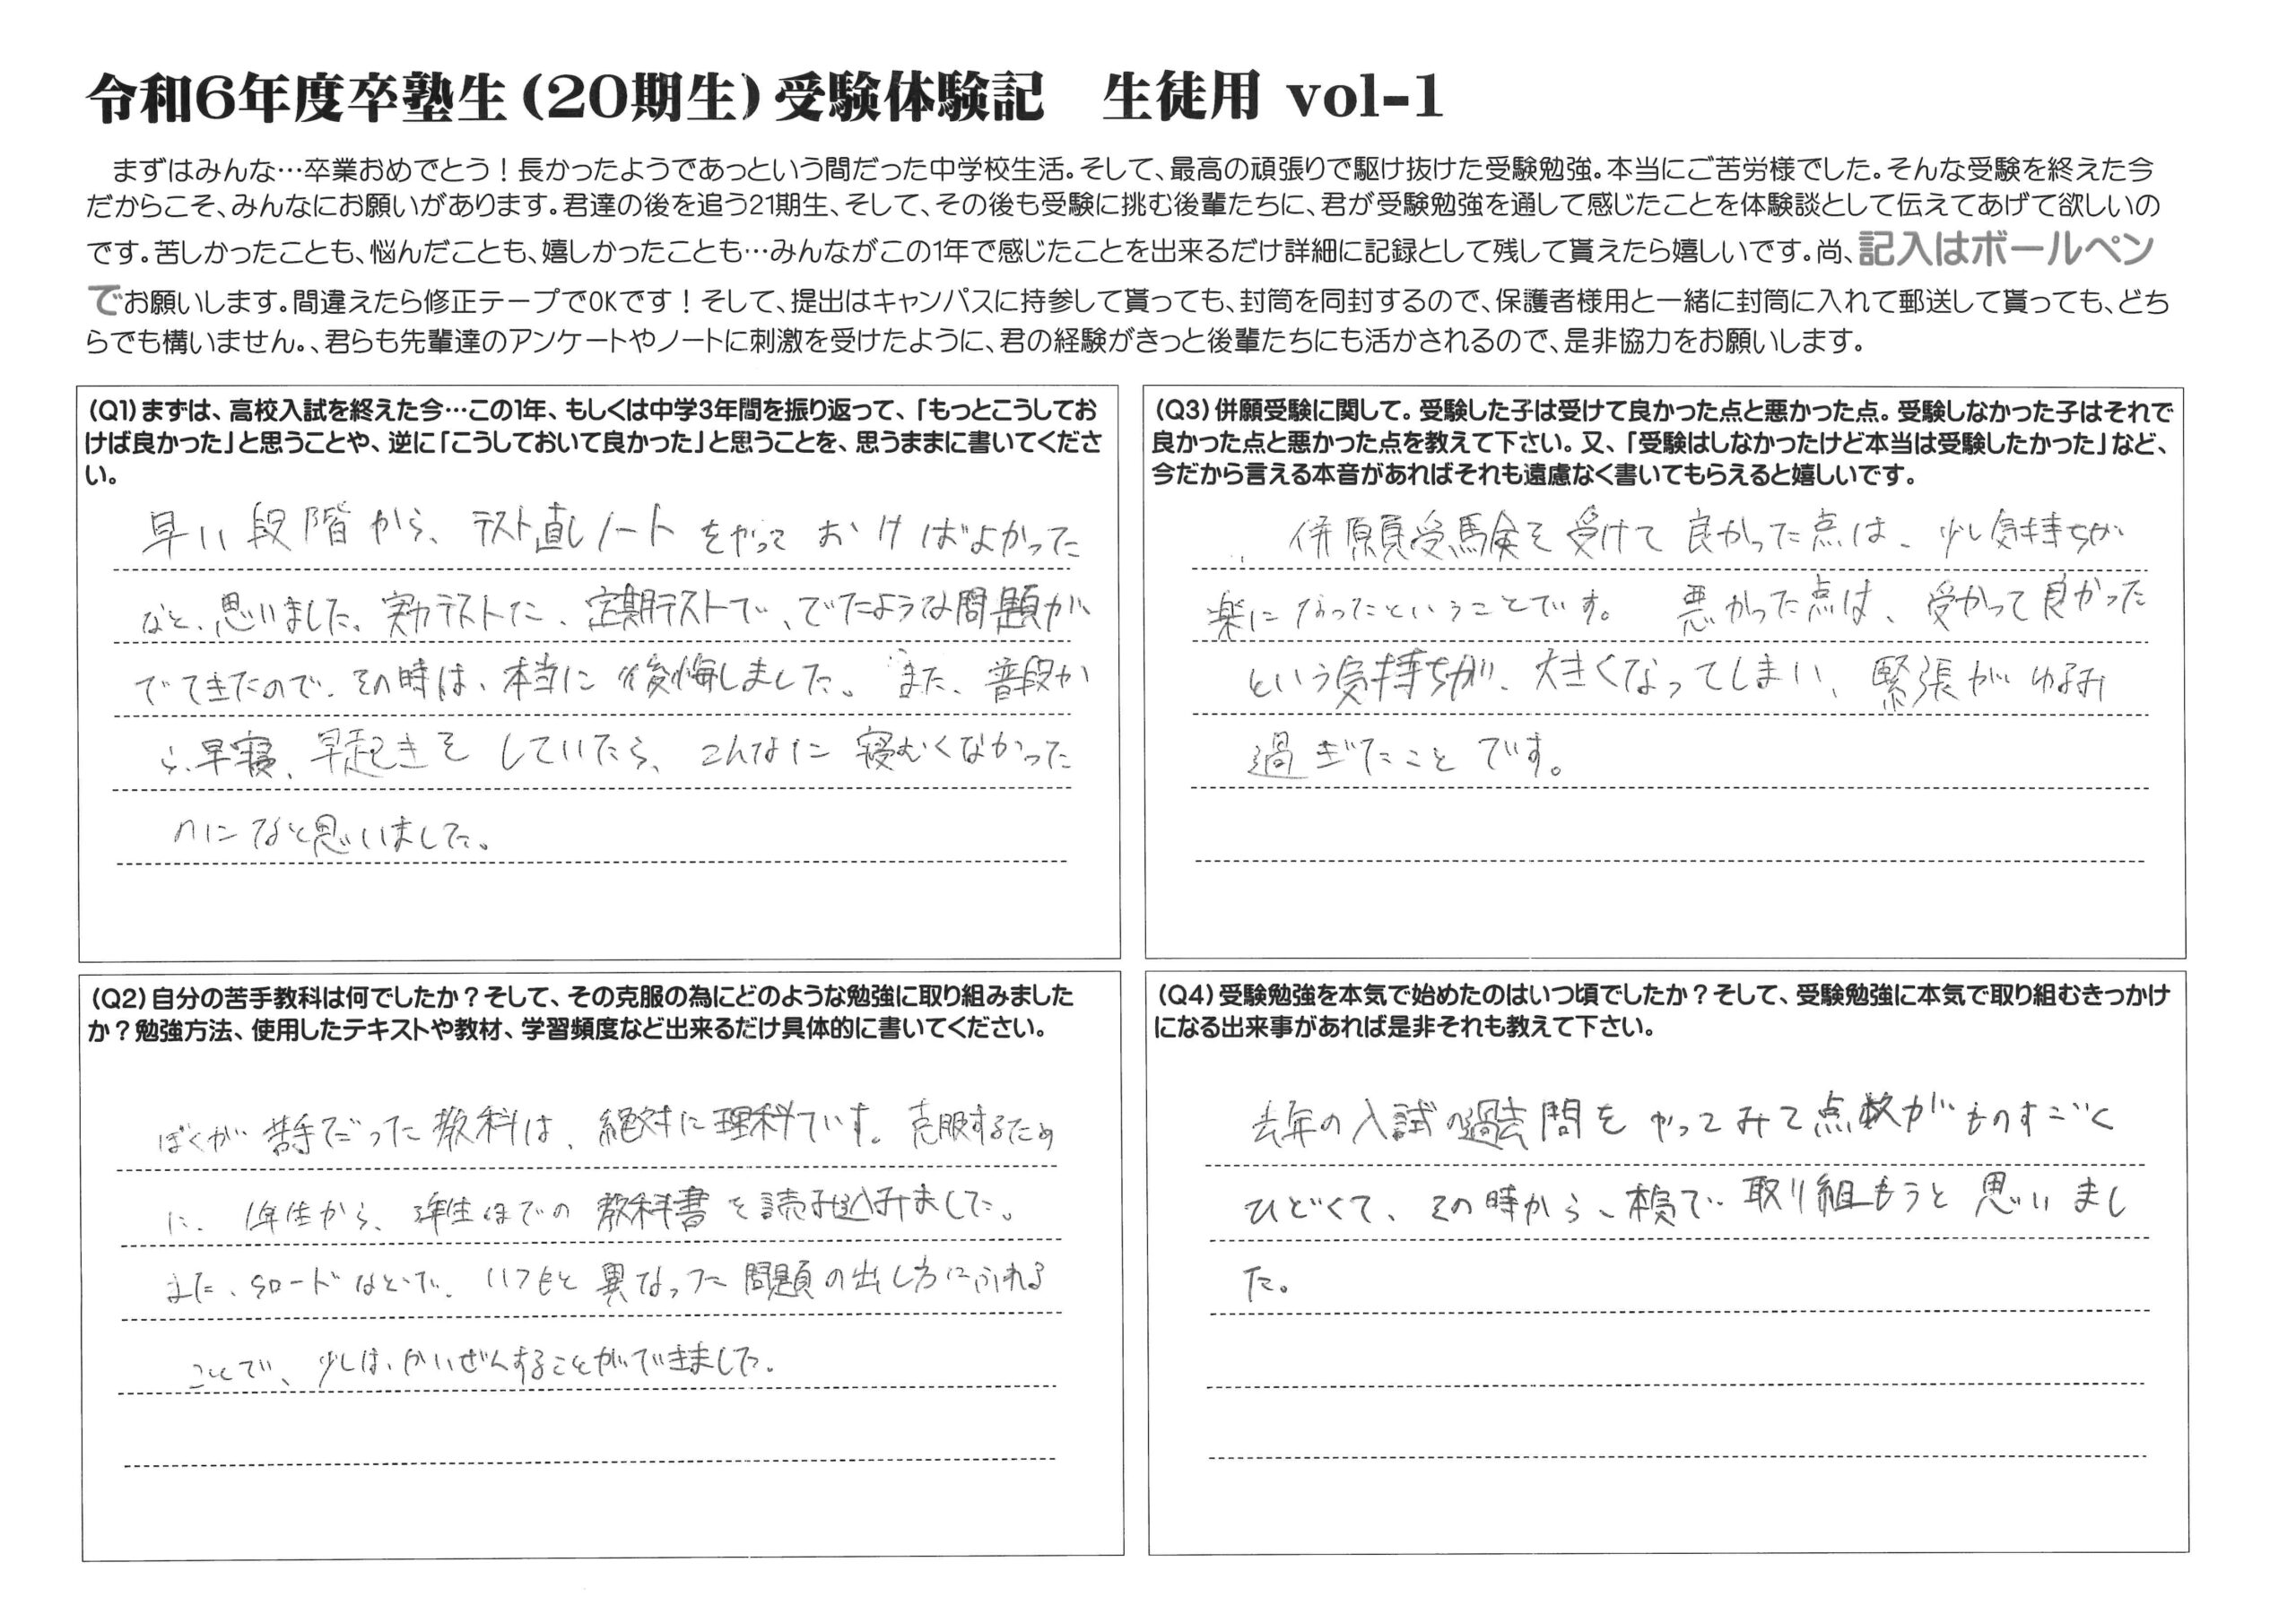 令和6年度卒塾生(20期生)受験体験記　生徒用 vol-1
まずはみんな…卒業おめでとう！長かったようであっという間だった中学校生活。そして、最高の頑張りで駆け抜けた受験勉強。本当にご苦労様でした。そんな受験を終えた今
だからこそ、みんなにお願いがあります。君達の後を追う21期生、そして、その後も受験に挑む後輩たちに、君が受験勉強を通して感じたことを体験談として伝えてあげて欲しいの
です。苦しかったことも、悩んだことも、嬉しかったことも…みんながこの1年で感じたことを出来るだけ詳細に記録として残して貰えたら嬉しいです。尚、記入はボールペン
でお願いします。間違えたら修正テープでOKです！そして、提出はキャンパスに持参して貰っても、封筒を同封するので、保護者様用と一緒に封筒に入れて郵送して貰っても、どち
らでも構いません。、君らも先輩達のアンケートやノートに刺激を受けたように、君の経験がきっと後輩たちにも活かされるので、是非協力をお願いします。
(Q1)まずは、高校入試を終えた今…この1年、もしくは中学3年間を振り返って、「もっとこうしてお
けば良かった」と思うことや、逆に「こうしておいて良かった」と思うことを、思うままに書いてくださ
い。
早い段階から、テスト直しノートをやっておけばよかった
なと、思いました。実力テストに、定期テストで、でたような問題が
でてきたので、その時は、本当に後悔しました。また、普段か
ら、早寝、早起きをしていたら、こんなに寝むくなかった
のになと思いました。
(Q2)自分の苦手教科は何でしたか？そして、その克服の為にどのような勉強に取り組みました
か？勉強方法、使用したテキストや教材、学習頻度など出来るだけ具体的に書いてください。
ぼくが苦手だった教科は、絶対に理科です。克服するため
に、1年生から、3年生までの教科書を読み込みました。
また、50ードなどで、いつもと異なった問題の出し方にふれる
ことで、少しは、かいぜんすることができました。
(Q3)併願受験に関して。受験した子は受けて良かった点と悪かった点。受験しなかった子はそれで
良かった点と悪かった点を教えて下さい。又、「受験はしなかったけど本当は受験したかった」など、
今だから言える本音があればそれも遠慮なく書いてもらえると嬉しいです。
併願受験を受けて良かった点は、少し気持ちが
楽になったということです。悪かった点は、受かって良かった
という気持ちが、大きくなってしまい、緊張がゆるみ
過ぎたことです。
(Q4)受験勉強を本気で始めたのはいつ頃でしたか？そして、受験勉強に本気で取り組むきっかけ
になる出来事があれば是非それも教えて下さい。
去年の入試の過去問をやってみて点数がものすごく
ひどくて、その時から、本気で取り組もうと思いまし
た。